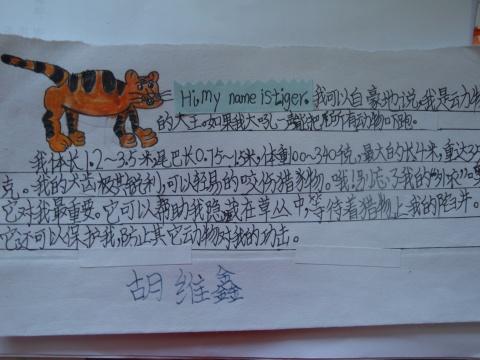 Hi, my name is tiger. 我可以自豪地说,我是动物
的大王。如果我大吼一声能把所有动物吓跑。
我体长1.2~3.5米尾巴长0.75~1.5米,体重100~340克,最大的长4米,重达35
克。我的犬齿极其锐利,可以轻易的咬伤猎物。哦,别忘了我的
它对我最重要。它可以帮助我隐藏在草丛中,等待着猎物上我的陷阱。
它还可以保护我,防止其它动物对我的功击。
胡维鑫